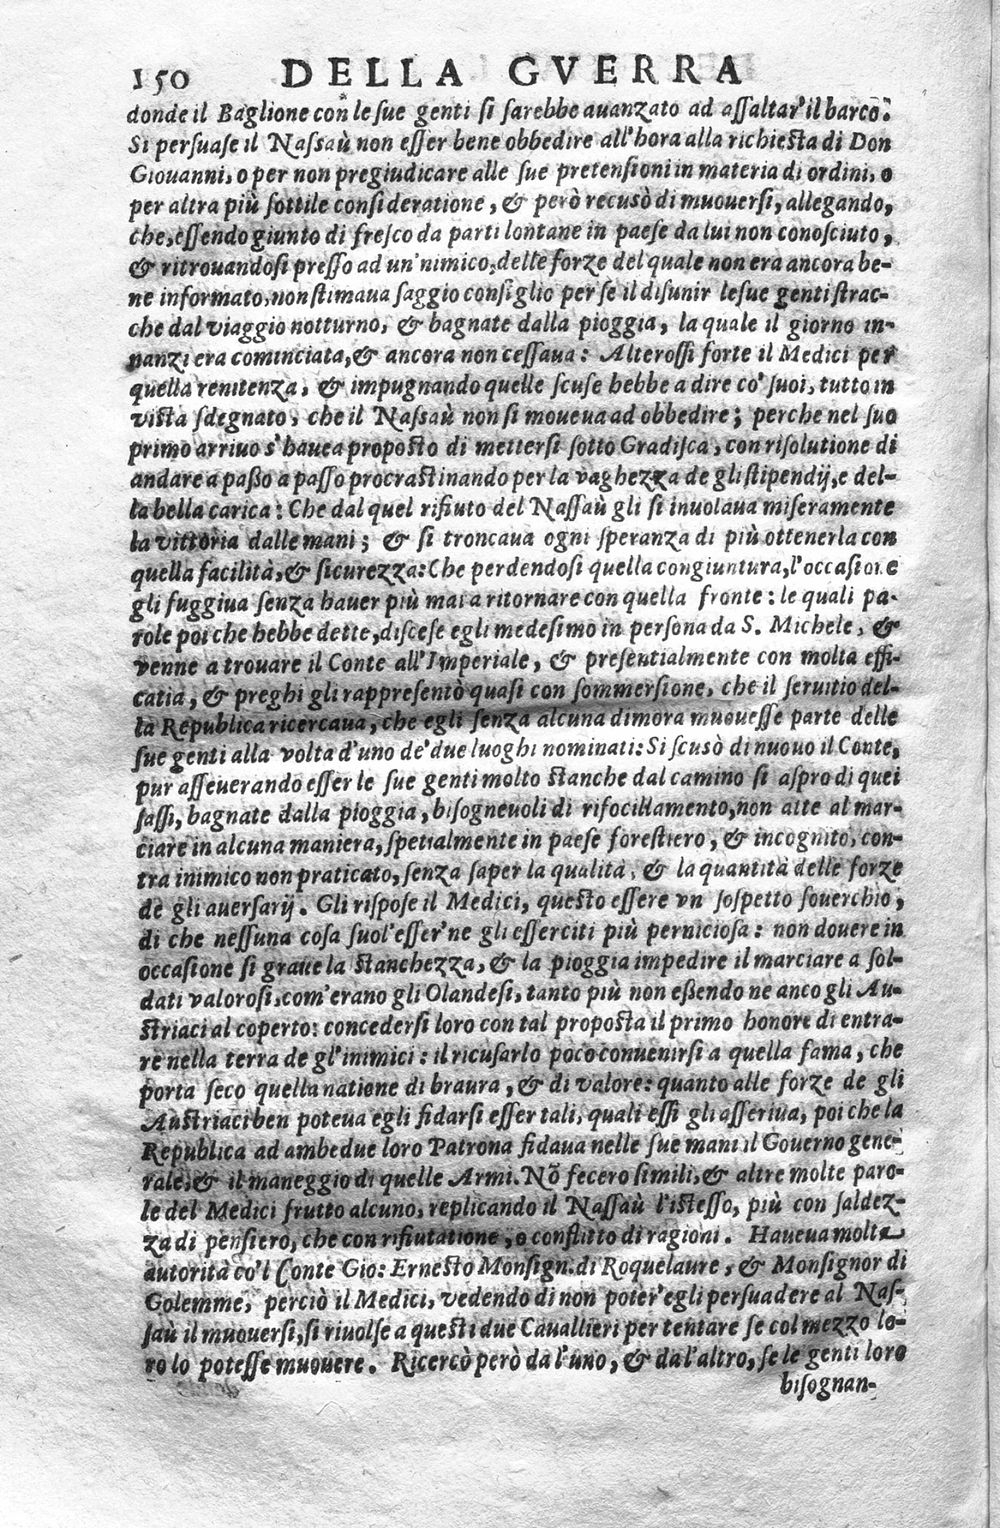 150 DELLA GVERRA
donde il Baglione con le sue genti si sarebbe auanzato ad assaltar'il barco.
Si persuase il Nassaù non esser bene obbedire all'hora alla richiesta di Don
Giouanni, o per non pregiudicare alle sue pretensioni in materia di ordini, o
per altra più sottile consideratione, & però recusò di muouersi, allegando,
che, essendo giunto di fresco da parti lontane in paese da lui non conosciuto,
& ritrouandosi presso ad un'nimico, delle forze del quale non era ancora be-
ne informato, non stimaua saggio consiglio per se il disunir le sue genti strac-
che dal viaggio notturno, & bagnate dalla pioggia, la quale il giorno in-
nanzi era cominciata, & ancora non cessaua: Alterossi forte il Medici per
quella renitenza, & impugnando quelle scuse hebbe a dire co' suoi, tutto in
vista sdegnato, che il Nassaù non si moueua ad obbedire; perche nel suo
primo arriuo s'hauea proposto di mettersi sotto Gradisca, con risolutione di
andare a passo a passo procrastinando per la vaghezza de gli stipendij, e del-
la bella carica: Che dal quel rifiuto del Nassaù gli si inuolaua miseramente
la vittoria dalle mani; & si troncaua ogni speranza di più ottenerla con
quella facilità, & sicurezza: Che perdendosi quella congiuntura, l'occasione
gli fuggiua senza hauer più mai a ritornare con quella fronte: le quali pa-
role poi che hebbe dette, discese egli medesimo in persona da S. Michele, &
venne a trouare il Conte all'Imperiale, & presentialmente con molta effi-
catia, & preghi gli rappresentò quasi con sommersione, che il seruitio del-
la Republica ricercaua, che egli senza alcuna dimora muouesse parte delle
sue genti alla volta d'uno de' due luoghi nominati: Si scusò di nuouo il Conte,
pur asseuerando esser le sue genti molto stanche dal camino si aspro di quei
sassi, bagnate dalla pioggia, bisogneuoli di rifocillamento, non atte al mar-
ciare in alcuna maniera, spetialmente in paese forestiero, & incognito, con-
tra inimico non praticato, senza saper la qualità, & la quantità delle forze
de gli auersarij. Gli rispose il Medici, questo essere vn sospetto souerchio,
di che nessuna cosa suol'esser'ne gli esserciti più perniciosa: non douere in
occasione si graue la stanchezza, & la pioggia impedire il marciare a sol-
dati valorosi, com'erano gli Olandesi, tanto più non essendo ne anco gli Au-
striaci al coperto: concedersi loro con tal proposta il primo honore di entra-
re nella terra de gl'inimici: il ricusarlo poco conuenirsi a quella fama, che
porta seco quella natione di braura, & di valore: quanto alle forze de gli
Austriaci ben poteua egli fidarsi esser tali, quali essi gli asseriua, poi che la
Republica ad ambedue loro Patrona fidaua nelle sue mani il Gouerno gene-
rale, & il maneggio di quelle Armi. Nõ fecero simili, & altre molte paro-
le del Medici frutto alcuno, replicando il Nassaù l'istesso, più con saldez-
za di pensiero, che con rifiutatione, o conflitto di ragioni. Haueua molta
autorità co'l Conte Gio: Ernesto Monsign. di Roquelaure, & Monsignor di
Golemme, perciò il Medici, vedendo di non poter'egli persuadere al Nas-
saù il muouersi, si riuolse a questi due Cauallieri per tentare se col mezzo lo-
ro lo potesse muouere. Ricercò però da l'uno, & da l'altro, se le genti loro
bisognan-